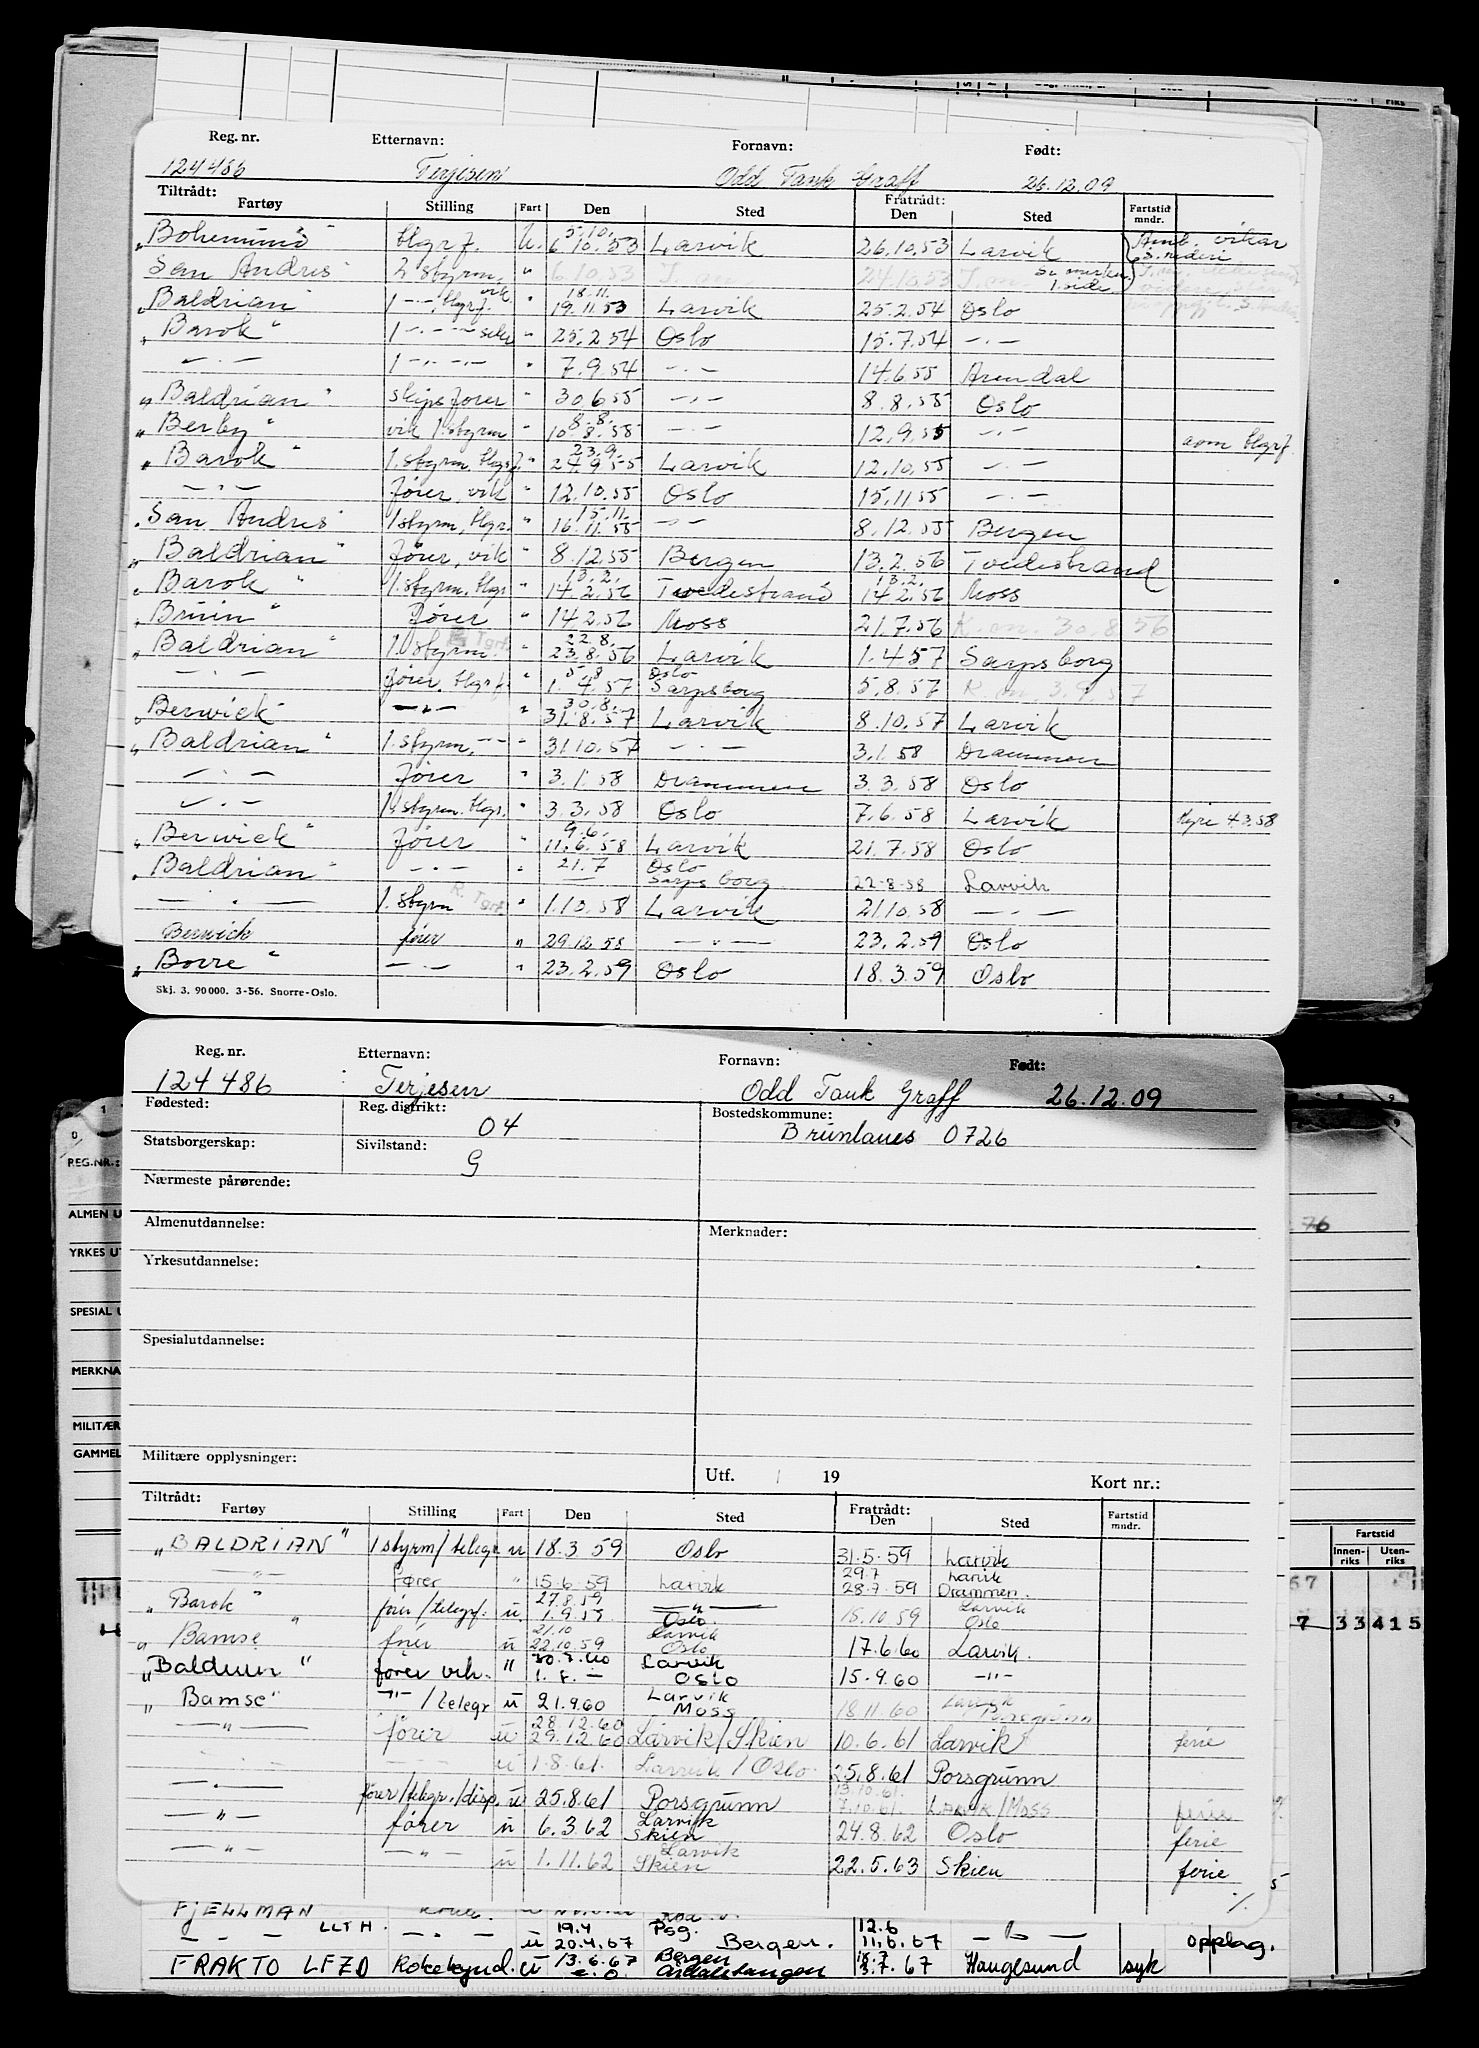 Reg. nr. Etternavn: Fornavn: Født:
124486 Terjesen Odd Tank Graff 26.12.09
Tiltrådt: Fratrådt:
Fartøy Stilling Fart Den Sted Den Sted Fartstid mndr.
5.10.
„Bohemund" tlgrf. U. 6.10.53 Larvik 26.10.53 Larvik Amb. vikar
San Andres 2 styrm. " 6.10.53 24.10.53
vik. 18.11.
„Baldrian" 1 -"- tlgrf. " 19.11.53 Larvik 25.2.54 Oslo
„Barok" 1 -"- " 25.2.54 Oslo 15.7.54 -"-
-"- 1 -"- " 7.9.54 -"- 14.6.55 Arendal
„Baldrian" skipsfører " 30.6.55 -"- 8.8.55 Oslo
8.8.
„Berby" vik 1.styrm " 10.8.55 -"- 12.9.55 -"- som tlgrf.
23.9.
„Barok" 1.styrm. tlgrf. " 24.9.55 Larvik 12.10.55 -"-
-"- fører, vik " 12.10.55 Oslo 15.11.55 -"-
15.11.
„San Andres" 1 styrm, tlgr. " 16.11.55 -"- 8.12.55 Bergen
„Baldrian" fører, vik " 8.12.55 Bergen 13.2.56 Tvedestrand
13.2. 13.2.
„Barok" 1.styrm. tlgr " 14.2.56 Tvedestrand 14.2.56 Moss
„Bruin" Fører " 14.2.56 Moss 21.7.56 K. m. 30.8.56
22.8.
„Baldrian" 1.styrm. " 23.8.56 Larvik 1.4.57 Sarpsborg
5.8 Oslo
-"- fører. tlgrf. " 1.4.57 Sarpsborg 5.8.57 K. m. 3.9.57
30.8.
„Berwick" -"- " 31.8.57 Larvik 8.10.57 Larvik
„Baldrian" 1.styrm. -"- " 31.10.57 -"- 3.1.58 Drammen
-"- fører " 3.1.58 Drammen 3.3.58 Oslo
-"- 1.styrm. tlgr. " 3.3.58 Oslo 7.6.58 Larvik Hyre 4.3.58
9.6.
„Berwick" fører " 11.6.58 Larvik 21.7.58 Oslo
21.7 Oslo
„Baldrian" -"- " Sarpsborg 22-8-58 Larvik
-"- 1. styrm R. Tgrf. " 1.10.58 Larvik 21.10.58 -"-
Berwick fører " 29.12.58 -"- 23.2.59 Oslo
„Borre" -"- " 23.2.59 Oslo 18.3.59 Oslo
Skj. 3. 90 000. 3-56. Snorre-Oslo.
Reg. nr. Etternavn: Fornavn: Født:
124486 Terjesen Odd Tank Graff 26.12.09
Fødested: Reg. distrikt: Bostedskommune:
04 Brunlanes 0726
Statsborgerskap: Sivilstand:
G
REG.NR.:
Nærmeste pårørende:
ALMEN U
Almenutdannelse: Merknader: 76
YRKES UT
Yrkesutdannelse:
SPESIAL U
Spesialutdannelse:
MERKNA
MILITÆR
GAMMEL
Militære opplysninger:
Utf. 19 Kort nr.:
Tiltrådt: Fratrådt:
Fartøy Stilling Fart Den Sted Den Sted Fartstid mndr.
Fartstid
Innenriks Utenriks
„BALDRIAN" 1 styrm/telegr u 18.3.59 Oslo 31.5.59 Larvik
29.7 Larvik
-"- fører " 15.6.59 Larvik 28.7.59 Drammen. 67
27.8.59 -"- Larvik
„Barok" fører/telegrf. u. 1.9.59 Oslo. 15.10.59 Oslo 7 33415
21.10 Larvik
„Bamse" fører u 22.10.59 Oslo 17.6.60 Larvik.
30.7.60 Larvik
„Balduin" fører vik. " 1.8. - Oslo 15.9.60 -"-
Larvik Larvik
„Bamse" -"-/telegr u 21.9.60 Moss 18.11.60 Porsgrunn
28.12.60
-"- fører u 29.12.60 Larvik/Skien 10.6.61 Larvik ferie
-"- u 1.8.61. Larvik/Oslo. 25.8.61 Porsgrunn
13.10.61.
-"- fører/telegr./disp. u 25.8.61 Porsgrunn 7.10.61. Larvik/Moss ferie
Larvik
-"- fører u 6.3.62 Skien 24.8.62 Oslo ferie
Larvik
-"- -"- u 1.11.62 Skien 22.5.63 Skien ferie
%
FJELLMAN
LLTH. 19.4 Psg. 12.6
-"- u 20.4.67 Bergen. 11.6.67 -"- opplag.
FRAKTO LFZD Kokebynd. u 13.6.67 Bergen 3.7.67 Haugesund syk
e.o. Årdalstangen